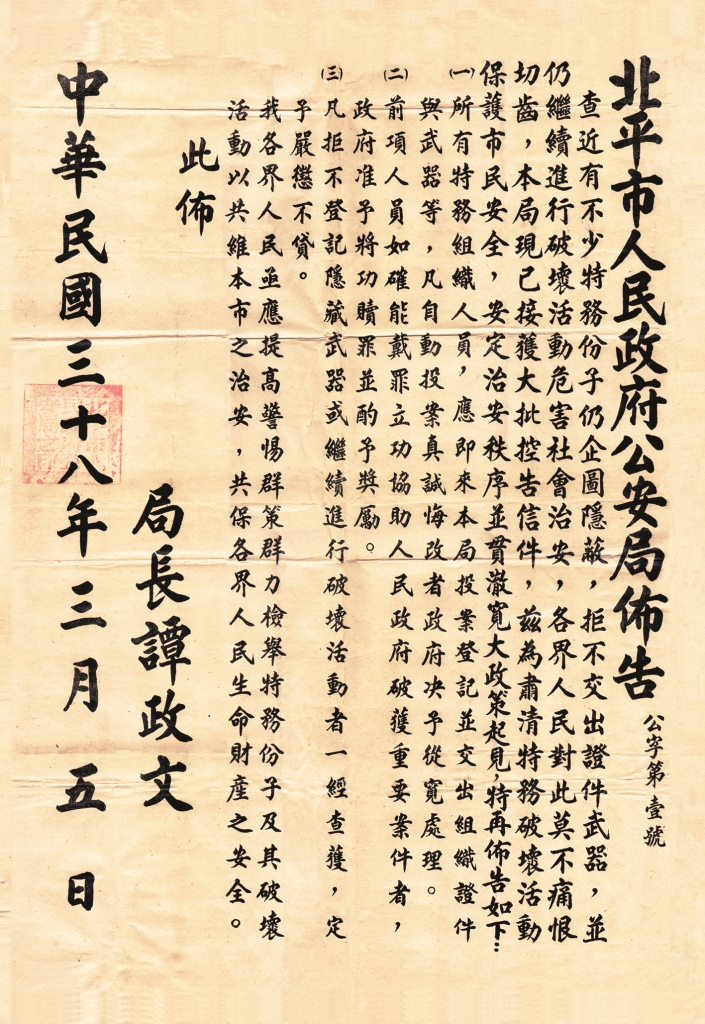 北平市人民政府公安局佈告
公字第壹號
查近有不少特務份子仍企圖隱蔽，拒不交出證件武器，並
仍繼續進行破壞活動危害社會治安，各界人民對此莫不痛恨
切齒，本局現已接獲大批控告信件，茲為肅清特務破壞活動
保護市民安全，安定治安秩序並貫澈寬大政策起見，特再佈告如下：
㈠所有特務組織人員，應即來本局投案登記並交出組織證件
與武器等，凡自動投案真誠悔改者政府決予從寬處理。
㈡前項人員如確能戴罪立功協助人民政府破獲重要案件者，
政府准予將功贖罪並酌予獎勵。
㈢凡拒不登記隱藏武器或繼續進行破壞活動者一經查獲，定
予嚴懲不貸。
我各界人民亟應提高警惕群策群力檢舉特務份子及其破壞
活動以共維本市之治安，共保各界人民生命財產之安全。
此佈
局長譚政文
中華民國三十八年三月五日